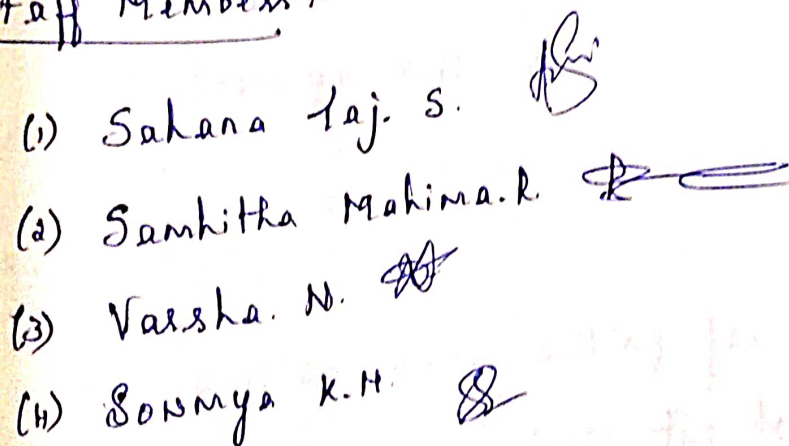 taff Members
(1) Sahana Taj. S.
(2) Samhitha Mahima. R.
(3) Varsha. N.
(4) Sowmya K.H.